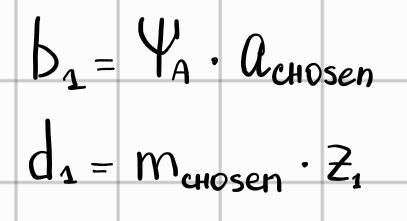 b₁ = Ψ_A · a_chosen
d₁ = m_chosen · z₁